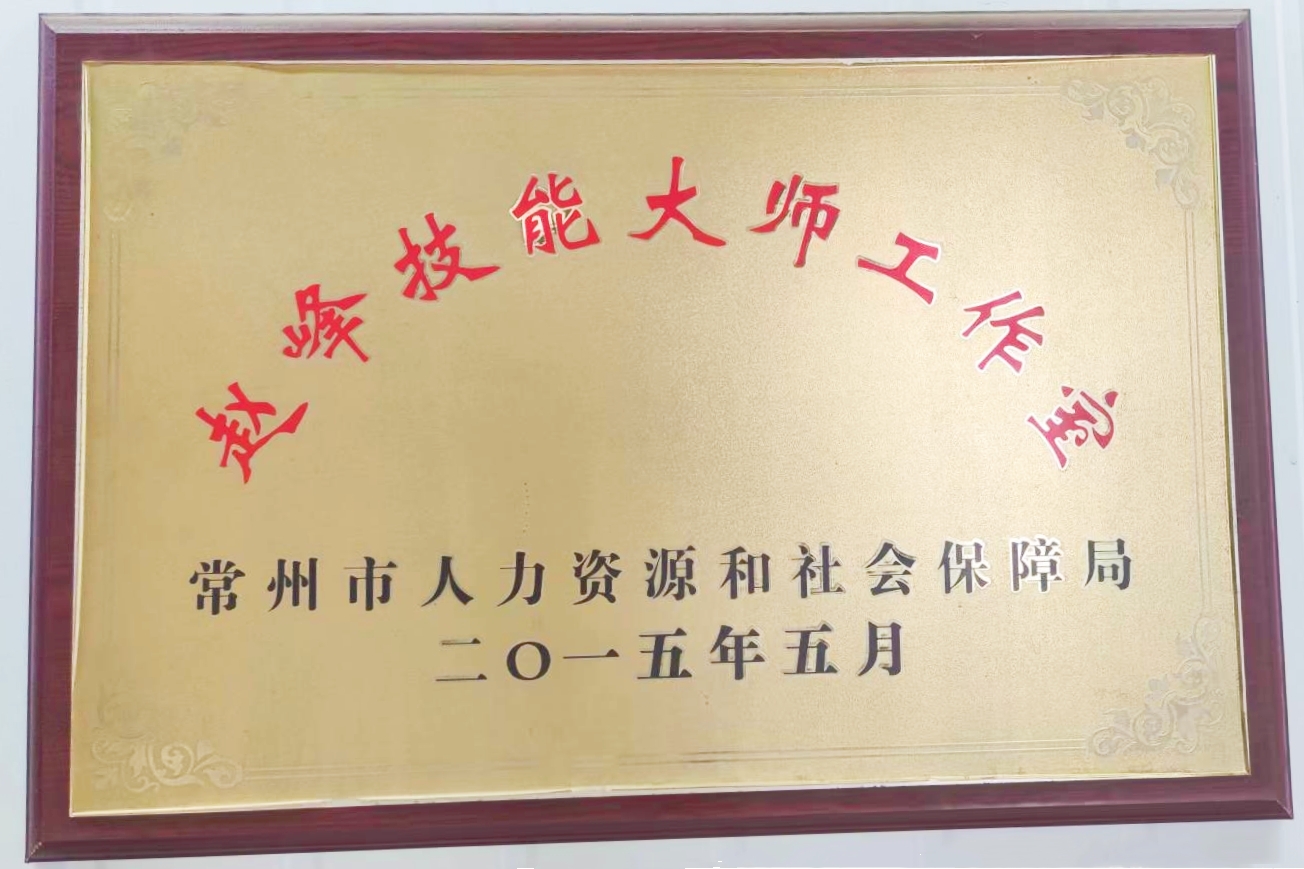 赵峰技能大师工作室
常州市人力资源和社会保障局
二〇一五年五月